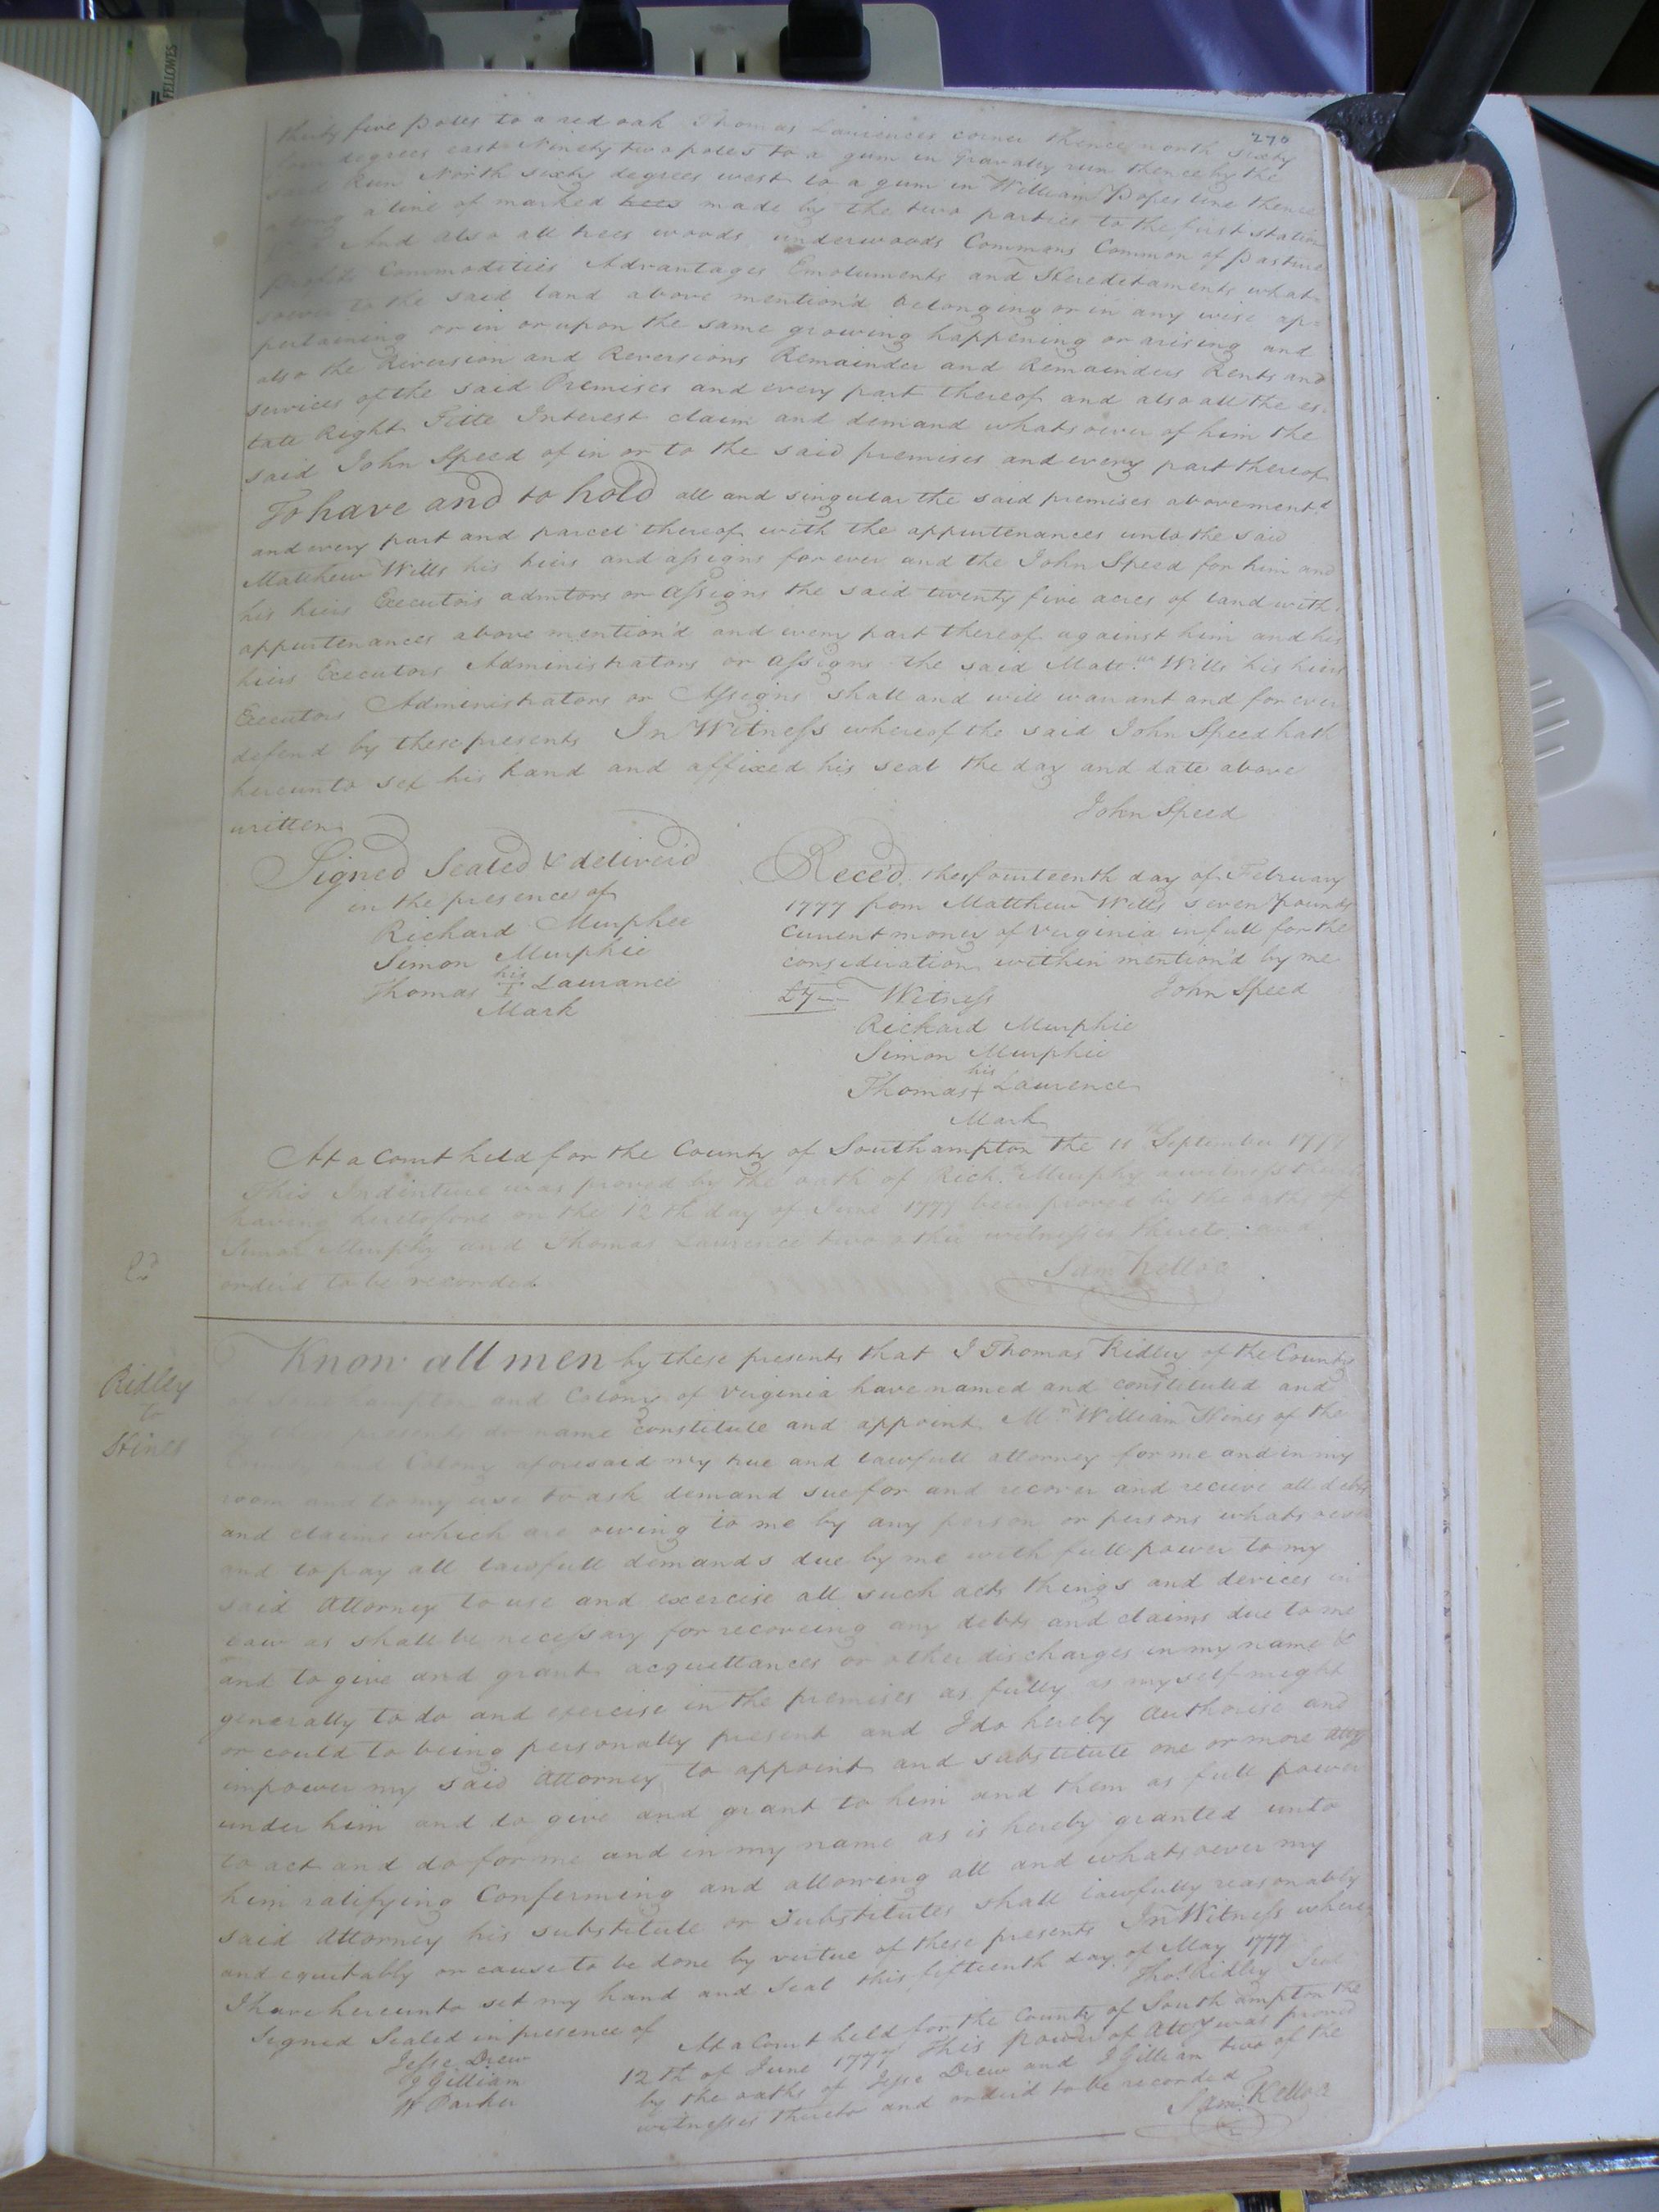 FELLOWES
270
thirty five poles to a red oak Thomas Laurences corner thence north sixty
four degrees east Ninety two poles to a gum in Gravally run thence by the
said Run North sixty degrees west to a gum in William Popes line thence
along a line of marked trees made by the two parties to the first station
And also all trees woods underwoods Commons Common of Pasture
profits Commodities Advantages Emoluments and Hereditaments what-
soever to the said land above mention'd belonging or in any wise ap-
pertaining or in or upon the same growing happening or arising and
also the Reversion and Reversions Remainder and Remainders Rents and
services of the said Premises and every part thereof and also all the es-
tate Right Title Interest claim and demand whatsoever of him the
said John Speed of in or to the said premises and every part thereof
To have and to hold all and singular the said premises abovementd
and every part and parcel thereof with the appurtenances unto the said
Matthew Wills his heirs and assigns for ever and the John Speed for him and
his heirs Executors admtors or Assigns the said twenty five acres of land with
appurtenances above mention'd and every part thereof against him and his
heirs Executors Administrators or Assigns the said Matt:w Wills his heirs
Executors Administrators or Assigns shall and will warrant and for ever
defend by these presents In Witness whereof the said John Speed hath
hereunto set his hand and affixed his seal the day and date above
written
John Speed
Signed Sealed & deliver'd
in the presence of
Richard Murphee
Simon Murphie
his
Thomas I Laurance
Mark
Rece'd this fourteenth day of February
1777 from Matthew Wills seven Pounds
Current money of Virginia in full for the
consideration within mention'd by me
£7-- Witness John Speed
Richard Murphie
Simon Murphie
his
Thomas + Laurence
Mark
At a Court held for the County of Southampton the 11th September 1777
This Indenture was proved by the oath of Rich:d Murphy a witness thereto
having heretofore on the 12th day of June 1777 been proved by the oaths of
Simon Murphy and Thomas Laurence two other witnesses thereto and
order'd to be recorded
Sam Kelloe
Ridley
to
Hines
Know all men by these presents that I Thomas Ridley of the County
of Southampton and Colony of Virginia have named and constituted and
by these presents do name constitute and appoint Mr William Hines of the
County and Colony aforesaid my true and lawfull attorney for me and in my
room and to my use to ask demand sue for and recover and recieve all debts
and claims which are owing to me by any person or persons whatsoever
and to pay all lawfull demands due by me with full power to my
said Attorney to use and exercise all such acts things and devices in
law as shall be necessary for recovering any debts and claims due to me
and to give and grant acquittances or other discharges in my name &
generally to do and exercise in the premises as fully as myself might
or could to being personally present and I do hereby authorise and
impower my said Attorney to appoint and substitute one or more Attys
under him and to give and grant to him and them as full power
to act and do for me and in my name as is hereby granted unto
him ratifying Conferming and allowing all and whatsoever my
said Attorney his substitute or substitutes shall lawfully reasonably
and equitably or cause to be done by virtue of these presents In Witness where
I have hereunto set my hand and Seal this fifteenth day of May 1777
Thos Ridley Seal
Signed Sealed in presence of
Jesse Drew
J Gilliam
W Parker
At a Court held for the County of Southampton the
12th of June 1777 This power of Atty was proved
by the oaths of Jesse Drew and J Gilliam two of the
witnesses thereto and order'd to be recorded
Sam Kelloe